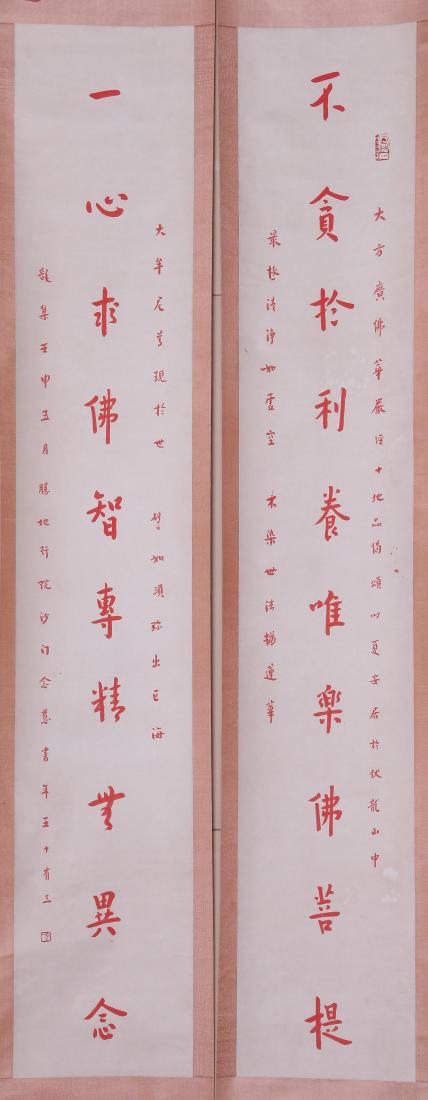 不貪於利養唯樂佛菩提
大方廣佛華嚴經十地品偈頌 夏安居於伏龍山中
最極清淨如虛空 不染世法猶蓮華
一心求佛智專精無異念
大牟尼尊現於世 譬如須弥出巨海
龍集壬申五月勝地行院沙门念慧書年五十有三